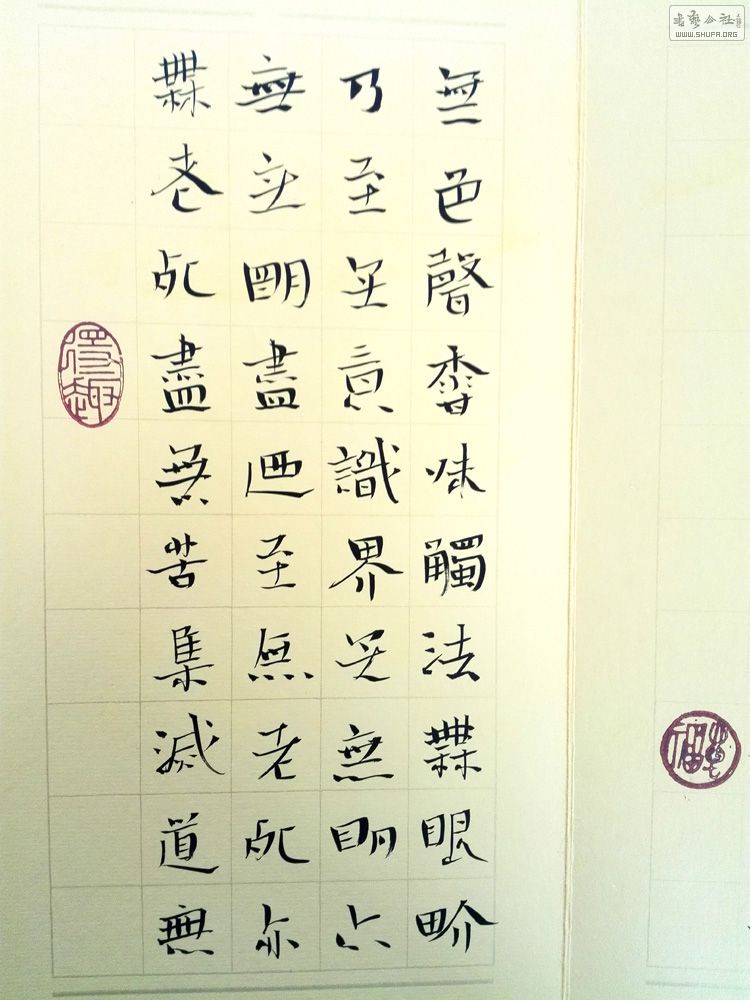 無色聲香味觸法無眼畍
乃至无意識界无無眀亦
無无明盡廼至無老死亦
無老死盡無苦集滅道無
书艺公社
WWW.SHUFA.ORG